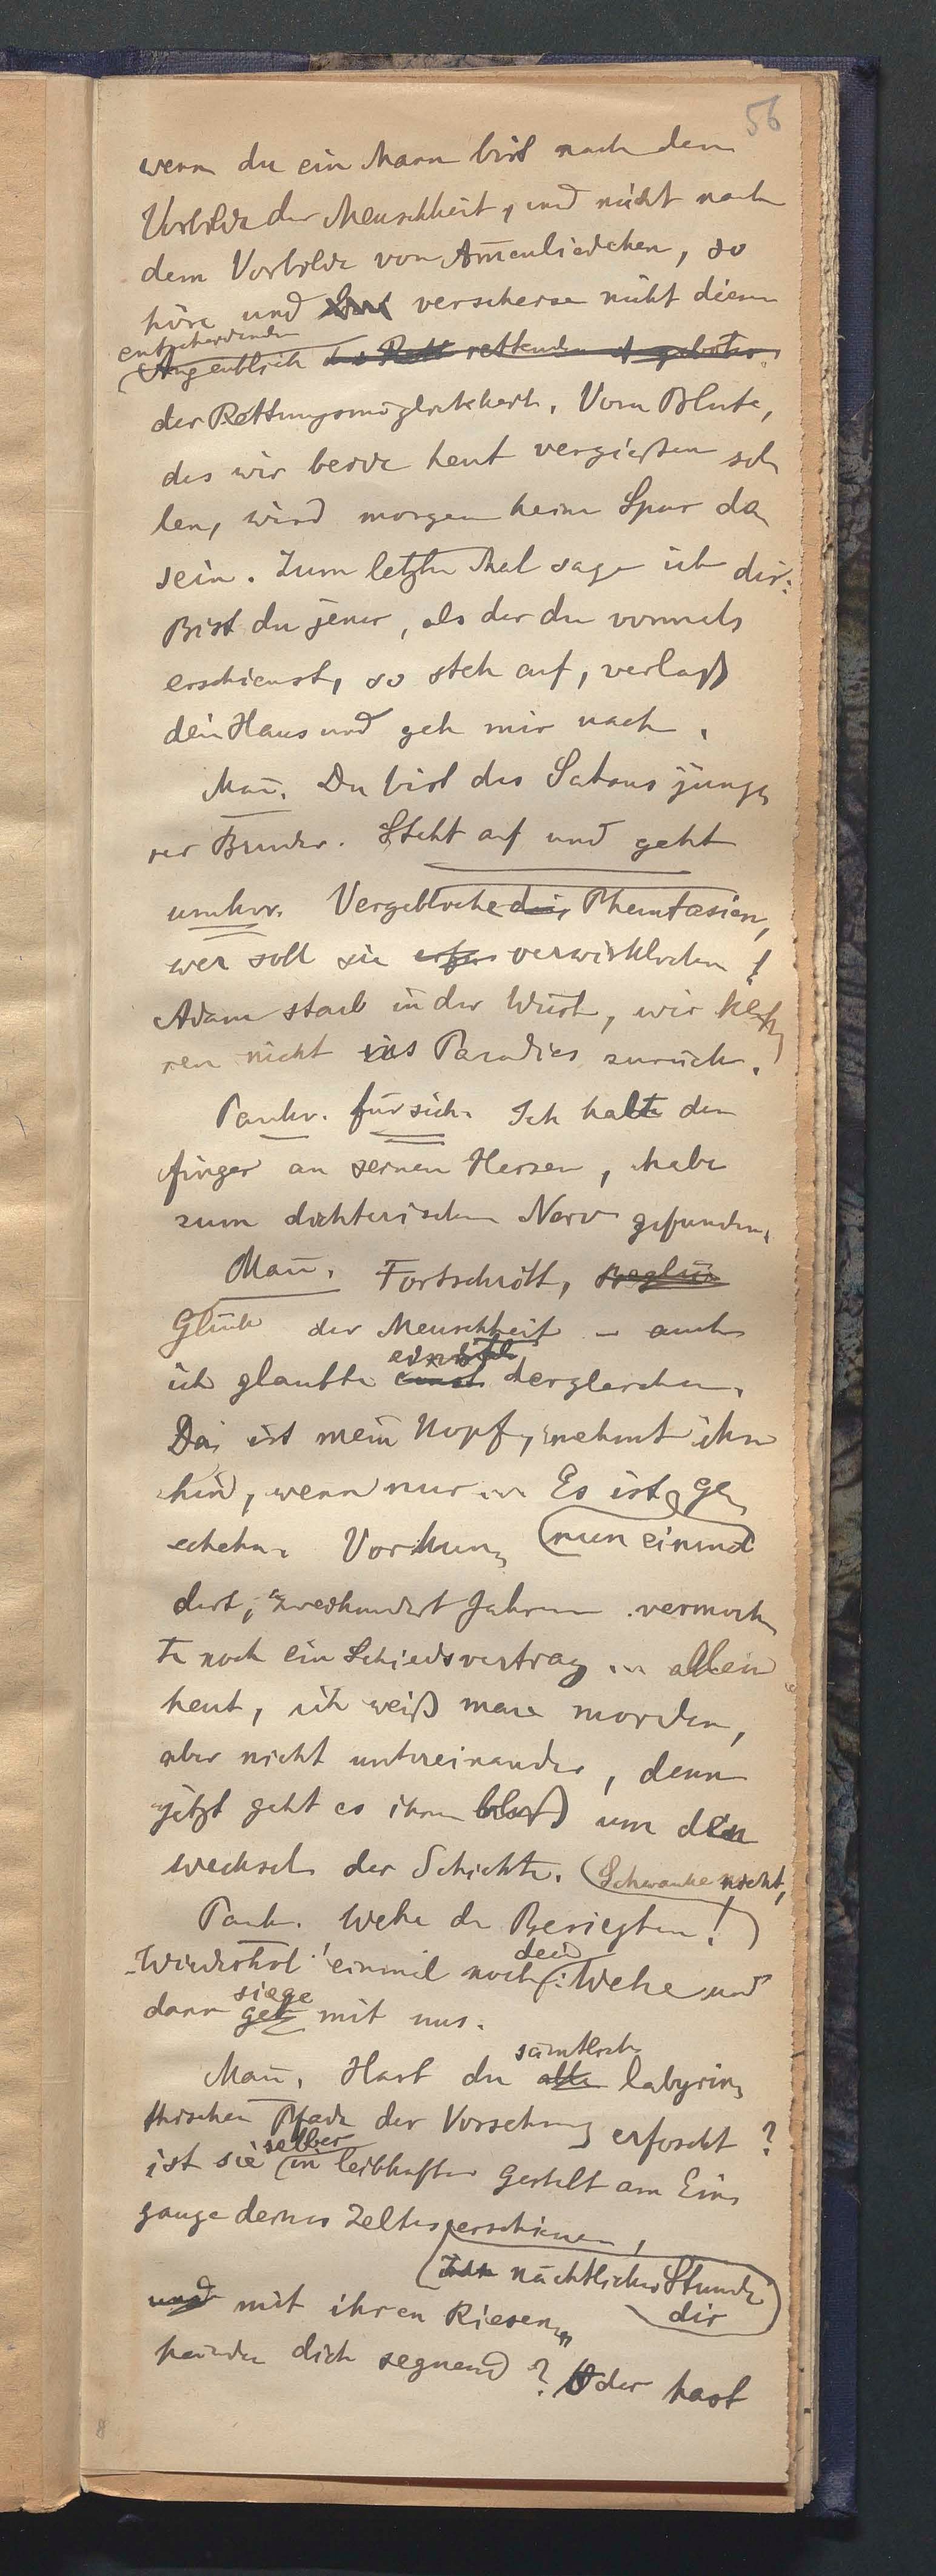 56
wenn du ein Mann bist nach dem
Vorbilde der Menschheit, und nicht nach
dem Vorbilde von Am̅enliedchen, so
höre und verscherze nicht diesen
entscheidenden
Augenblick des Rett rettenden Angebotes.
der Rettungsmöglichkeit. Vom Blute,
das wir beide heut vergießen sol
len, wird morgen keine Spur da
sein. Zum letzten Mal sage ich dir:
Bist du jener, als der du vormals
erschienst, so steh auf, verlaß
dein Haus und geh mir nach.
Man̅. Du bist des Satans jünge
rer Bruder. Steht auf und geht
umher. Vergebliche die Phantasien,
wer soll sie verwirklichen!
Adam starb in der Wüste, wir keh
ren nicht ins Paradies zurück.
Pankr. für sich. Ich halte den
Finger an seinem Herzen, habe
zum dichterischen Nerv gefunden.
Man̅. Fortschritt, Beglü
Glück der Menschheit – auch
einst
ich glaubte einst dergleichen.
Da ist mein Kopf, nehmt ihn
hin, wenn nur ... Es ist ge
schehn. Vor hun (nun einmal
dert, zweihundert Jahren vermoch
te noch ein Schiedsvertrag ... allein
heut, ich weiß man morden,
aber nicht untereinander, denn
jetzt geht es ihnen bloß um den
Wechsel der Schichte. (Schwanke nicht,
Pank. Wehe den Besiegten!
dein
Wiederhol' einmal noch: Wehe und
siege
dann geh mit uns.
sämtliche
Man̅. Hast du alle labyrin
thischen Pfade der Vorsehung erforscht?
selber
ist sie in leibhafter Gestalt am Ein
gange deines Zeltes erschienen,
nächtlicher Stunde
dir
und mit ihren Riesen
händen dich segnend? Oder hast
8